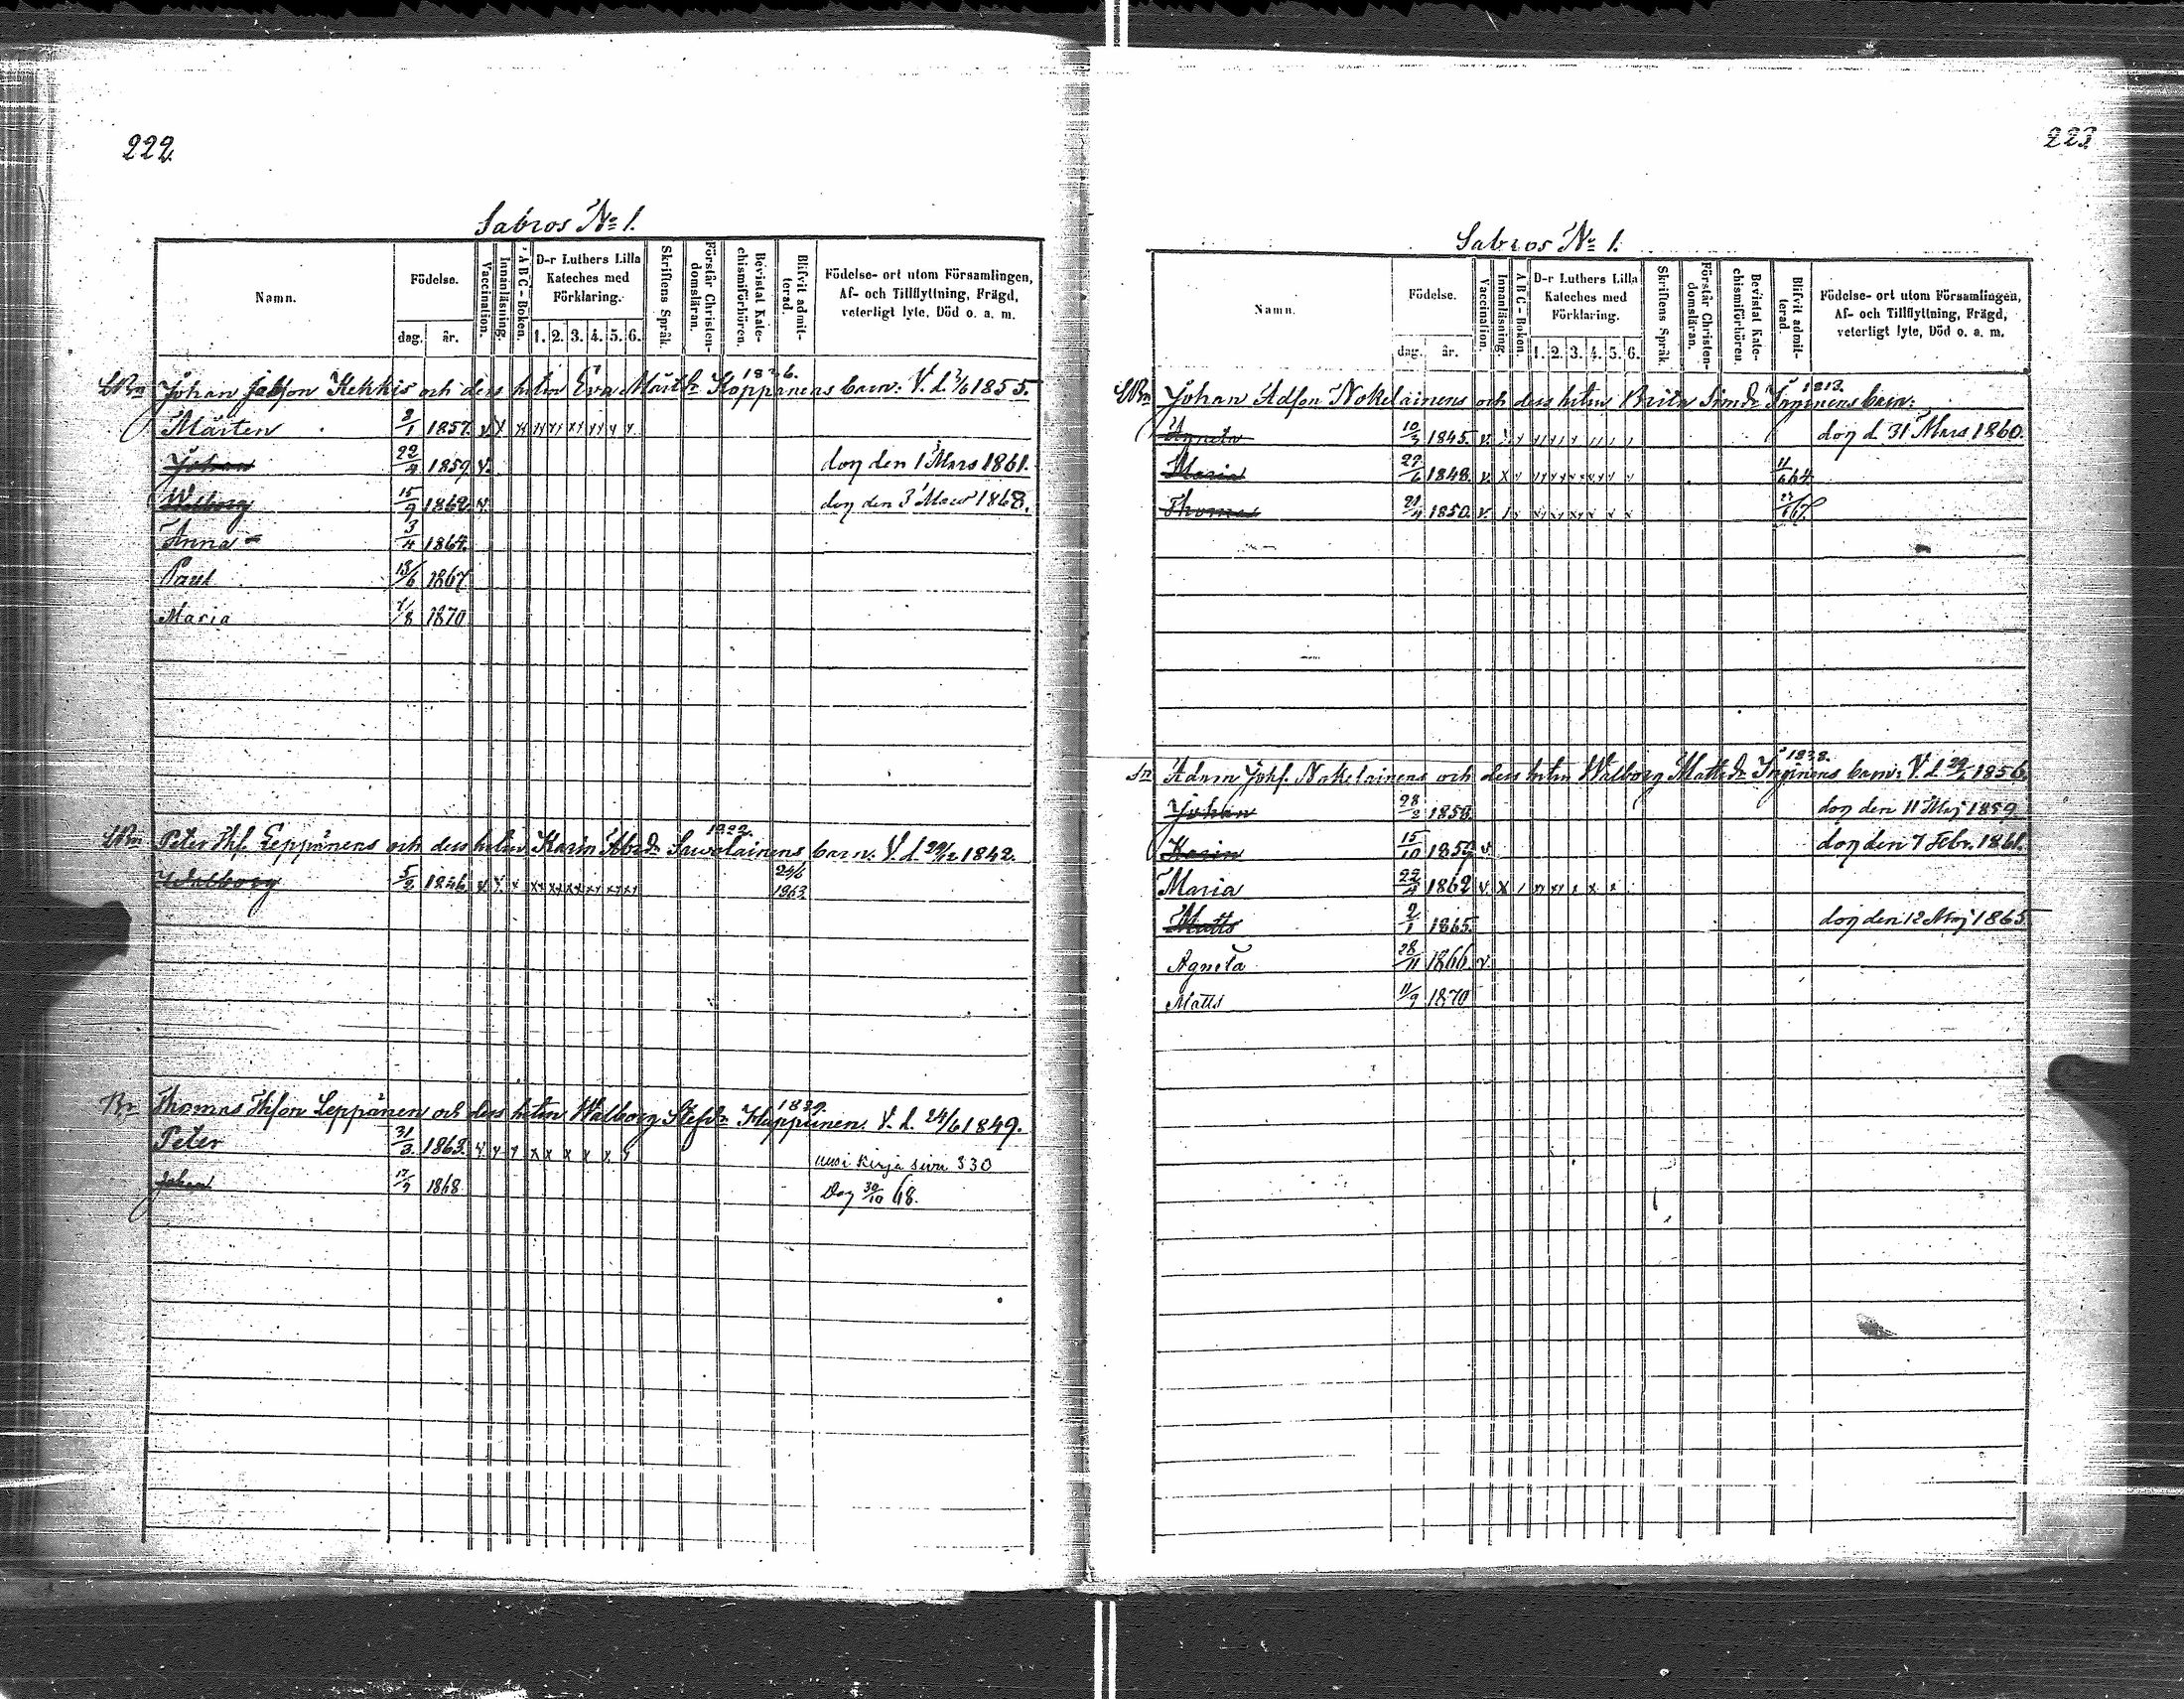 222
Sabros No 1.
Namn.
Födelse.
dag. år.
Vaccination.
Innanläsning.
A B C - Boken.
D-r Luthers Lilla Kateches med Förklaring.
1. 2. 3. 4. 5. 6.
Skriftens Språk.
Förstår Christendomsläran.
Bevistat Katechismiförhören.
Blifvit admitterad.
Födelse- ort utom Församlingen, Af- och Tillflyttning, Frägd, veterligt lyte, Död o. a. m.
1826.
Johan Kekkis och dess hustru Eva Märtsdr Koppanens barn: V. d. 1855.
Mårten 2/1 1857. v
Johan 22/4 1859. v. dog den 1 Mars 1861.
Walborg 15/9 1862. v. dog den 3 Mars 1868.
Anna 3/4 1864.
Paul 13/6 1867
Maria 1/8 1870
1822.
Peter Thf. Leppänens och dess hustru Karin Abrdr Sawolainens barn. V. d. 29/12 1842.
Walborg 5/2 1846. v 24/6 1863
1829.
Thomas Thfson Leppänen och dess hustru Walborg Stefdr V. d. 24/6 1849.
Peter 31/3 1863. uusi kirja sivu 330
Johan 17/9 1868 Dog 30/10 68.
223
Sabros No 1.
Namn.
Födelse.
dag. år.
Vaccination.
Innanläsning.
A B C - Boken.
D-r Luthers Lilla Kateches med Förklaring.
1. 2. 3. 4. 5. 6.
Skriftens Språk.
Förstår Christendomsläran.
Bevistat Katechismiförhören.
Blifvit admitterad.
Födelse- ort utom Församlingen, Af- och Tillflyttning, Frägd, veterligt lyte, Död o. a. m.
1813.
Johan Adfson Nokelainens och dess hustru Brita Simdr Inginens barn:
Agneta 10/3 1845. v. dog d. 31 Mars 1860.
Maria 27/6 1848. v. 11/6 64
Thomas 21/4 1850. v. 67.
1838.
Adam Johf. Nokelainens och dess hustru Walborg Mattsdr Inginens barn: V. d. 1856.
Johan 28/2 1858. dog den 11 Maj 1859
Karin 15/10 1859 v. dog den 7 Febr. 1861.
Maria 22/4 1862 v
Matts 2/1 1865. dog den 12 Maj 1865
Agneta 28/11 1866 v.
Matts 11/9 1870